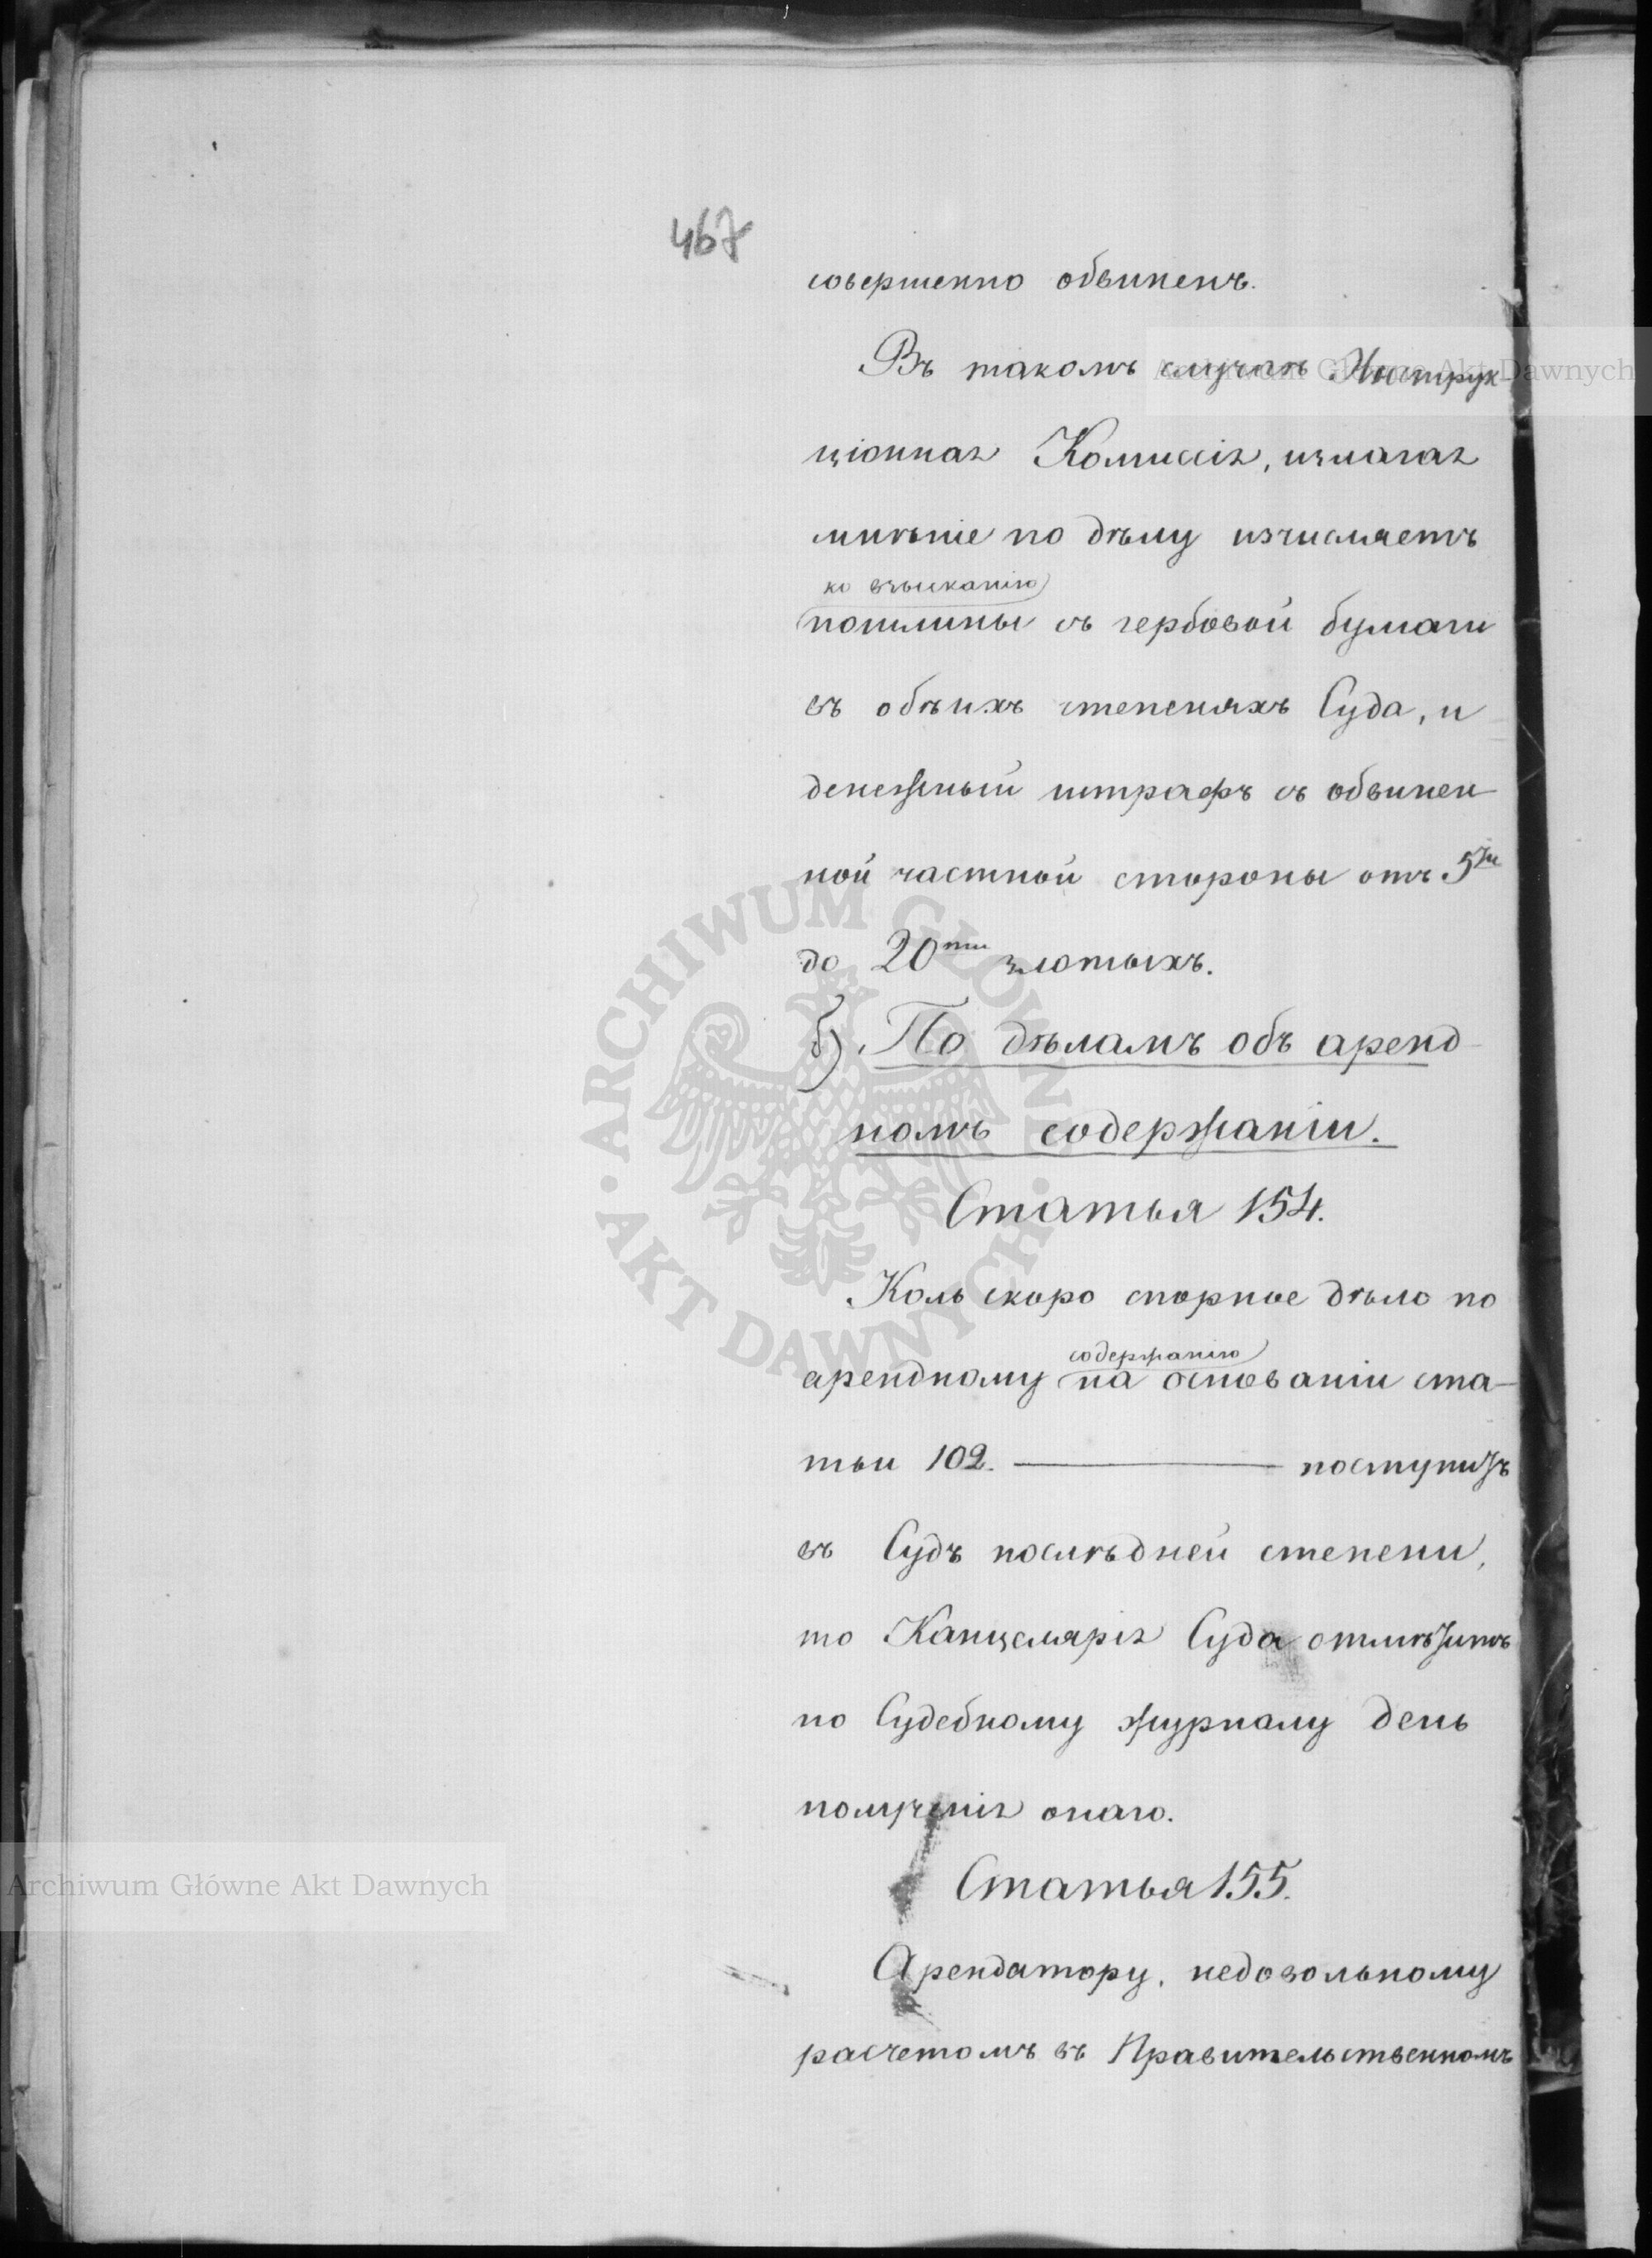 467
совершенно обвиненъ.
Въ такомъ случаѣ Инструк
ціонная Комиссія, излагая
мнѣніе по дѣлу изчисляетъ
ко взысканію
пошлины съ гербовой бумаги
въ обѣихъ степеняхъ Суда, и
денежный штрафъ съ обвинен
ной частной стороны отъ 5ти
до 20ти злотыхъ.
б). По дѣламъ объ аренд
номъ содержаніи.
Статья 154.
Коль скоро спорное дѣло по
содержанію
арендному на основаніи ста-
тьи 102. — поступитъ
въ Судъ послѣдней степени,
то Канцелярія Суда отмѣтитъ
по Судебному журналу день
полученія онаго.
Статья 155.
Арендатору, недовольному
расчетомъ въ Правительственномъ
Archiwum Główne Akt Dawnych
Archiwum Główne Akt Dawnych
ARCHIWUM GŁÓWNE AKT DAWNYCH